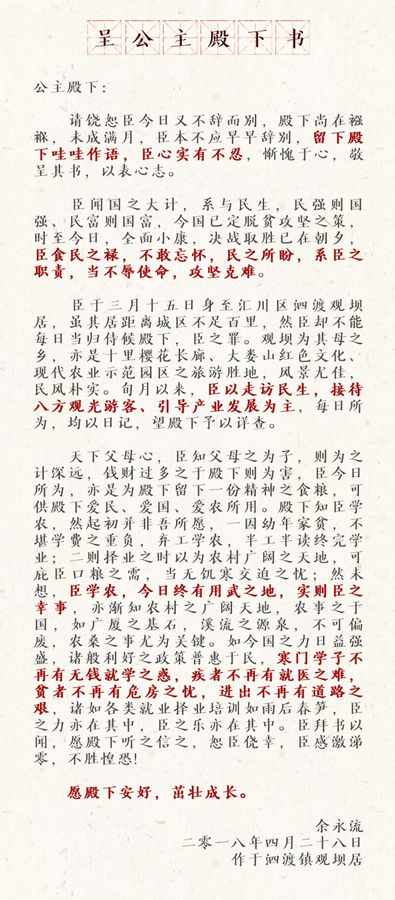 呈公主殿下书
公主殿下：
请饶恕臣今日又不辞而别，殿下尚在襁
褓，未成满月，臣本不应早早辞别，留下殿
下哇哇作语，臣心实有不忍，惭愧于心，敬
呈其书，以表心志。
臣闻国之大计，系与民生，民强则国
强、民富则国富，今国已定脱贫攻坚之策，
时至今日，全面小康，决战取胜已在朝夕，
臣食民之禄，不敢忘怀，民之所盼，系臣之
职责，当不辱使命，攻坚克难。
臣于三月十五日身至汇川区泗渡观坝
居，虽其居距离城区不足百里，然臣却不能
每日当归侍候殿下，臣之罪。观坝为其母之
乡，亦是十里樱花长廊、大娄山红色文化、
现代农业示范园区之旅游胜地，风景尤佳，
民风朴实。旬月以来，臣以走访民生，接待
八方观光游客、引导产业发展为主，每日所
为，均以日记，望殿下予以详查。
天下父母心，臣知父母之为子，则为之
计深远，钱财过多之于殿下则为害，臣今日
所为，亦是为殿下留下一份精神之食粮，可
供殿下爱民、爱国、爱农所用。殿下知臣学
农，然起初并非吾所愿，一因幼年家贫，不
堪学费之重负，弃工学农，半工半读终完学
业；二则择业之时以为农村广阔之天地，可
庇臣口粮之需，当无饥寒交迫之忧；然未
想，臣学农，今日终有用武之地，实则臣之
幸事，亦渐知农村之广阔天地，农事之于
国，如广厦之基石，溪流之源泉，不可偏
废，农桑之事尤为关键。如今国之力日益强
盛，诸般利好之政策普惠于民，寒门学子不
再有无钱就学之惑，疾者不再有就医之难，
贫者不再有危房之忧，进出不再有道路之
艰，诸如各类就业择业培训如雨后春笋，臣
之力亦在其中，臣之乐亦在其中。臣拜书以
闻，愿殿下听之信之，恕臣侥幸，臣感激涕
零，不胜惶恐!
愿殿下安好，茁壮成长。
余永流
二零一八年四月二十八日
作于泗渡镇观坝居